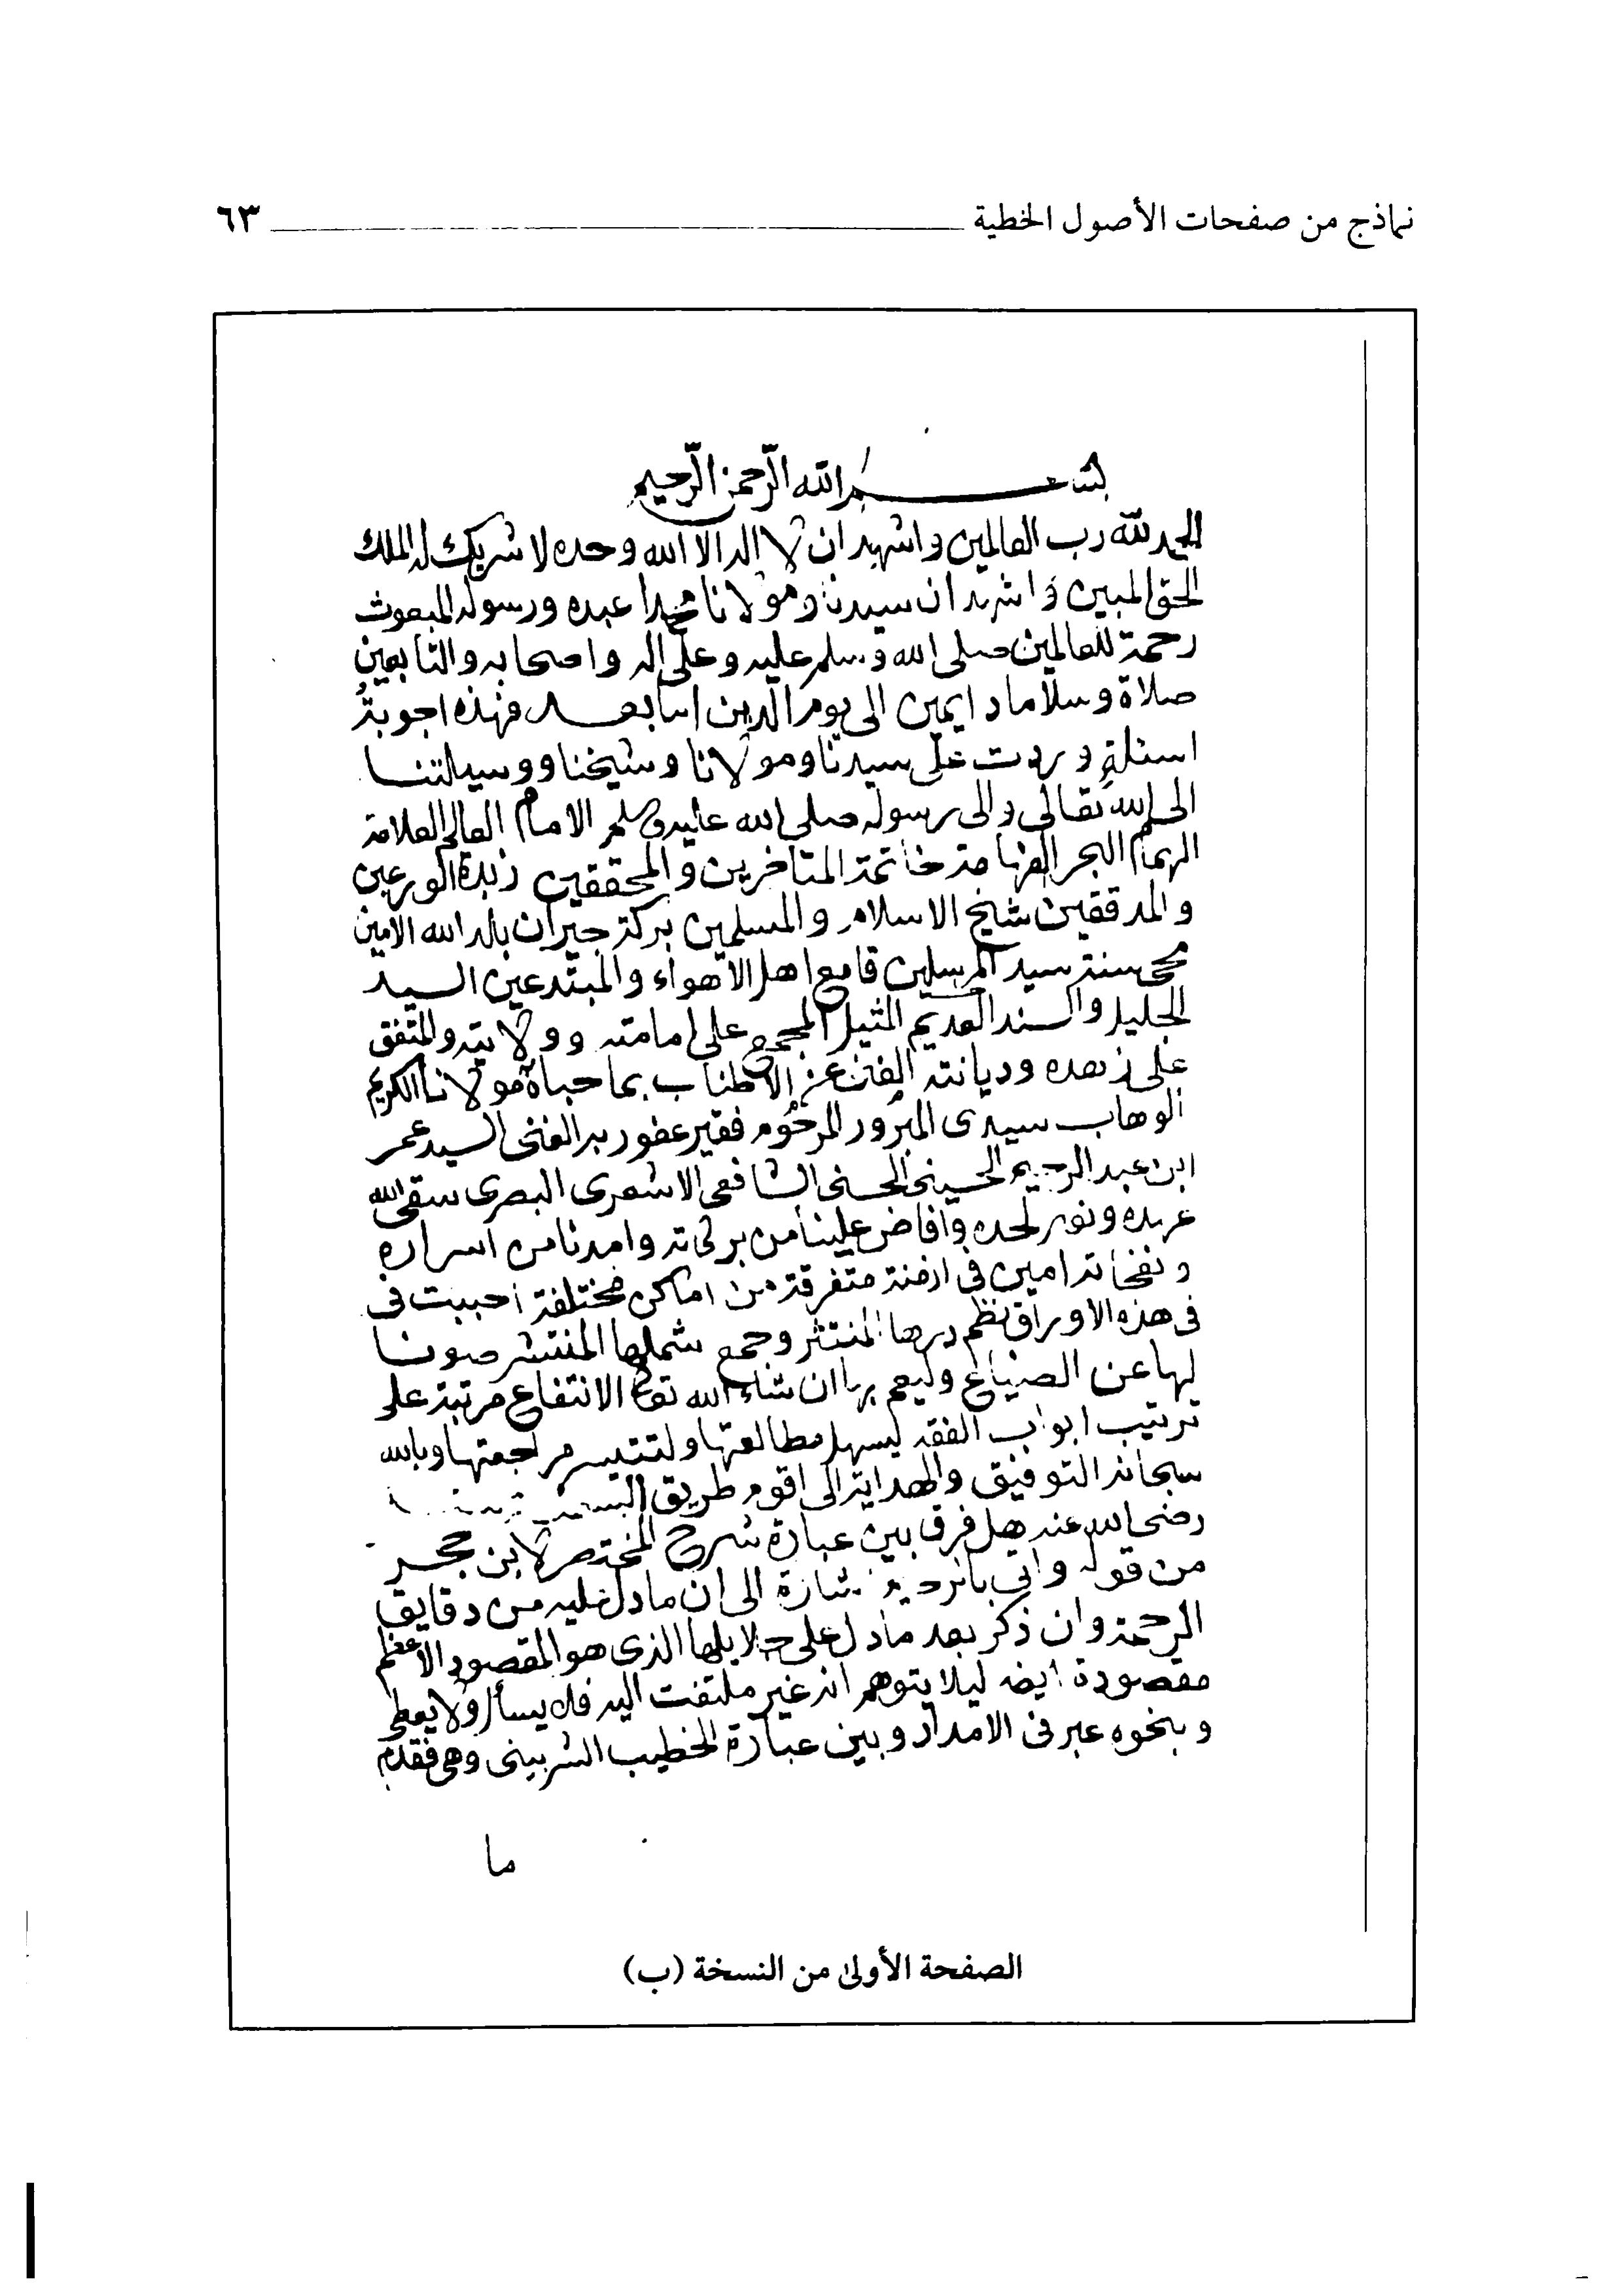 نماذج من صفحات الأصول الخطية ٦٣
بسم الله الرحمن الرحيم
الحمد لله رب العالمين واشهد ان لا اله الا الله وحده لا شريك له الملك
الحق المبين واشهد ان سيدنا ومولانا محمدا عبده ورسوله المبعوث
رحمة للعالمين صلى الله وسلم عليه وعلى اله واصحابه والتابعين
صلاة وسلاما دايمين الى يوم الدين اما بعد فهذه اجوبة
اسئلة وردت على سيدنا ومولانا وشيخنا ووسيلتنا
الى الله تعالى والى رسوله صلى الله عليه وسلم الامام العالم العلامة
الهمام البحر الفهامة خاتمة المتاخرين والمحققين زبدة الورعين
والمدققين شيخ الاسلام والمسلمين بركة جيران بلد الله الامين
محي سنة سيد المرسلين قامع اهل الاهواء والمبتدعين السيد
الجليل والسند العديم المثيل المجمع على امامته وولايته والمتفق
على زهده وديانته الغني عن الاطناب بما حباه مولانا الكريم
الوهاب سيدى المبرور المرحوم فقير عفو ربه الغنى السيد عمر
ابن عبد الرحيم الحسينى الحسنى الشافعى الاشعرى البصرى سقى الله
عهده ونور لحده وافاض علينا من بركاته وامدنا من اسراره
ونفحاته امين فى ازمنة متفرقة من اماكن مختلفة احببت فى
فى هذه الاوراق نظم درها المنتثر وجمع شملها المنتشر صونا
لها عن الضياع وليعم بها ان شاء الله تعالى الانتفاع مرتبة على
ترتيب ابواب الفقه ليسهل مطالعتها ولتتيسر مراجعتها وبالله
سبحانه التوفيق والهداية الى اقوم طريق
رضى الله عنه هل فرق بين عبارة شرح المختصر لابن حجر
من قوله واتى بالرحيم اشارة الى ان ما دل عليه من دقايق
الرحمة وان ذكر بعد ما دل على جلايلها الذى هو المقصود الاعظم
مقصودة ايضه ليلا يتوهم انه غير ملتفت اليه فلا يسأل ولا يعطى
وبنحوه عبر فى الامداد وبين عبارة الخطيب الشربينى وهى فقدم
ما
الصفحة الأولى من النسخة (ب)